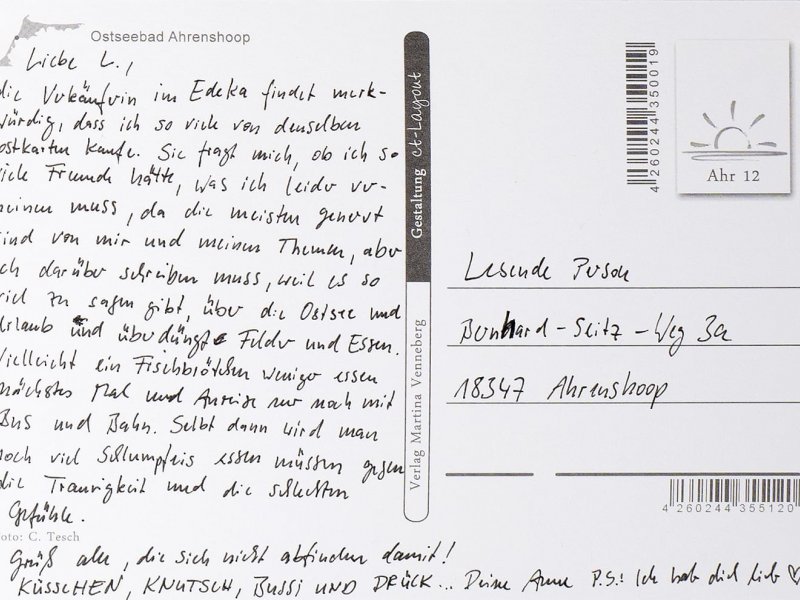 Ostseebad Ahrenshoop
Liebe L.,
die Verkäuferin im Edeka findet merk-
würdig, dass ich so viele von denselben
ostkarten kaufe. Sie fragt mich, ob ich so
viele Freunde hätte, was ich leider ver-
neinen muss, da die meisten genervt
sind von mir und meinen Themen, aber
ich darüber schreiben muss, weil es so
viel zu sagen gibt, über die Ostsee und
Urlaub und überdüngte Felder und Essen.
Vielleicht ein Fischbrötchen weniger essen
nächstes Mal und Anreise nur noch mit
Bus und Bahn. Selbst dann wird man
noch viel Schlumpfeis essen müssen gegen
die Traurigkeit und die schlechten
Gefühle.
oto: C. Tesch
Grüß alle, die sich nicht abfinden damit!
KÜSSCHEN, KNUTSCH, BUSSI UND DRÜCK... Deine Anne P.S.: Ich hab dich lieb
Gestaltung ct-Layout
Verlag Martina Venneberg
4 260244 350019
Ahr 12
Lesende Person
Bernhard-Seitz-Weg 3a
18347 Ahrenshoop
4 260244 355120